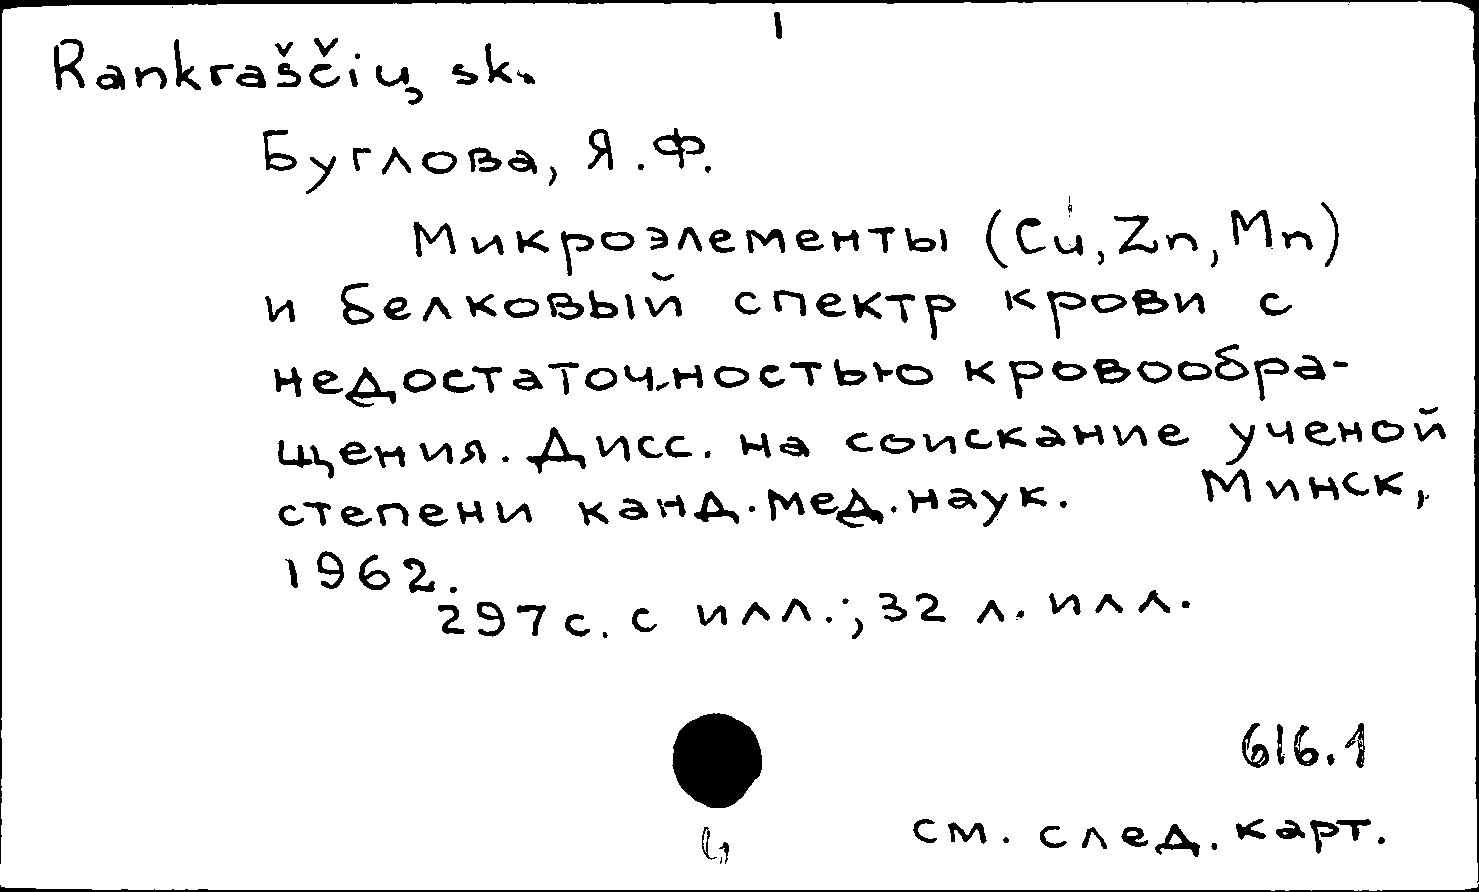 Rankraščių sk.
Буглова, Я.Ф.
Микроэлементы (Cu, Zn, Mn)
и белковый спектр крови с
недостаточностью кровообра-
щения. Дисс. на соискание ученой
степени канд. мед. наук. Минск,
1962.
297 с. с илл.; 32 л. илл.
616.1
см. след. карт.